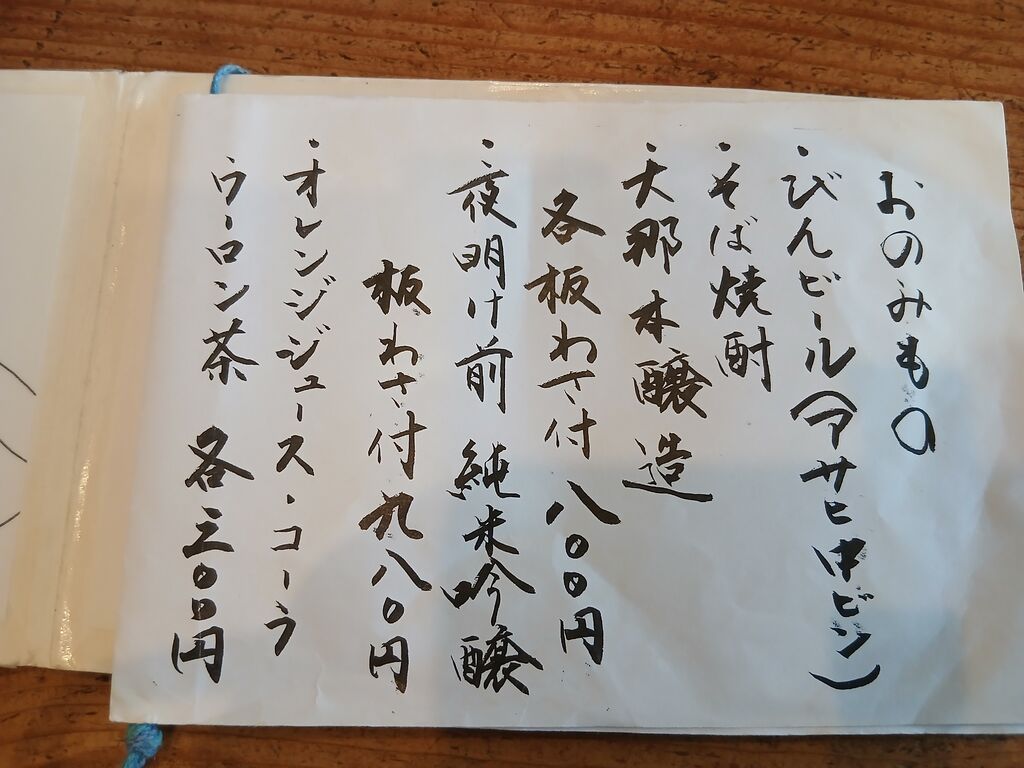 おのみもの
・びんビール(アサヒ中ビン)
・そば焼酎
・大那 本醸造
各板わさ付 八〇〇円
・夜明け前 純米吟醸
板わさ付 九八〇円
・オレンジジュース・コーラ
ウーロン茶 各三〇〇円